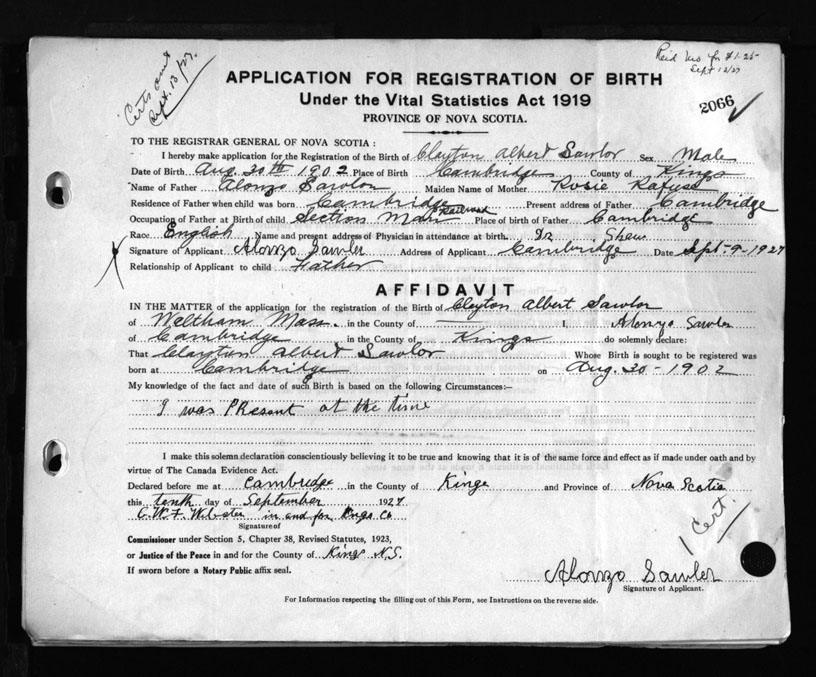 Certs sent
Sept. 13/27.
Paid Nov for $1.25
Sept 12/27
APPLICATION FOR REGISTRATION OF BIRTH
2066
Under the Vital Statistics Act 1919
PROVINCE OF NOVA SCOTIA.
TO THE REGISTRAR GENERAL OF NOVA SCOTIA:
I hereby make application for the Registration of the Birth of Clayton Albert Sawlor Sex Male
Date of Birth Aug. 30th 1902 Place of Birth Cambridge County of Kings
Name of Father Alonzo Sawlor Maiden Name of Mother Rosie Rafuse
Residence of Father when child was born Cambridge Present address of Father Cambridge
Occupation of Father at Birth of child Section Man Railroad Place of birth of Father Cambridge
Race English Name and present address of Physician in attendance at birth Dr Shaw
Signature of Applicant Alonzo Sawler Address of Applicant Cambridge Date Sept-9-1927
Relationship of Applicant to child Father
AFFIDAVIT
IN THE MATTER of the application for the registration of the Birth of Clayton Albert Sawlor
of Weltham Mass. in the County of I, Alonzo Sawler
of Cambridge in the County of Kings do solemnly declare:
That Clayton Albert Sawlor Whose Birth is sought to be registered was
born at Cambridge on Aug. 30-1902
My knowledge of the fact and date of such Birth is based on the following Circumstances:—
I was PResent at the time
I make this solemn declaration conscientiously believing it to be true and knowing that it is of the same force and effect as if made under oath and by
virtue of The Canada Evidence Act.
Declared before me at Cambridge in the County of Kings and Province of Nova Scotia
this tenth day of September 1927
C. W. F. Webster in and for Kings Co
Signature of
1 Cert.
Commissioner under Section 5, Chapter 38, Revised Statutes, 1923,
or Justice of the Peace in and for the County of Kings N.S.
If sworn before a Notary Public affix seal.
Alonzo Sawler
Signature of Applicant.
For Information respecting the filling out of this Form, see Instructions on the reverse side.